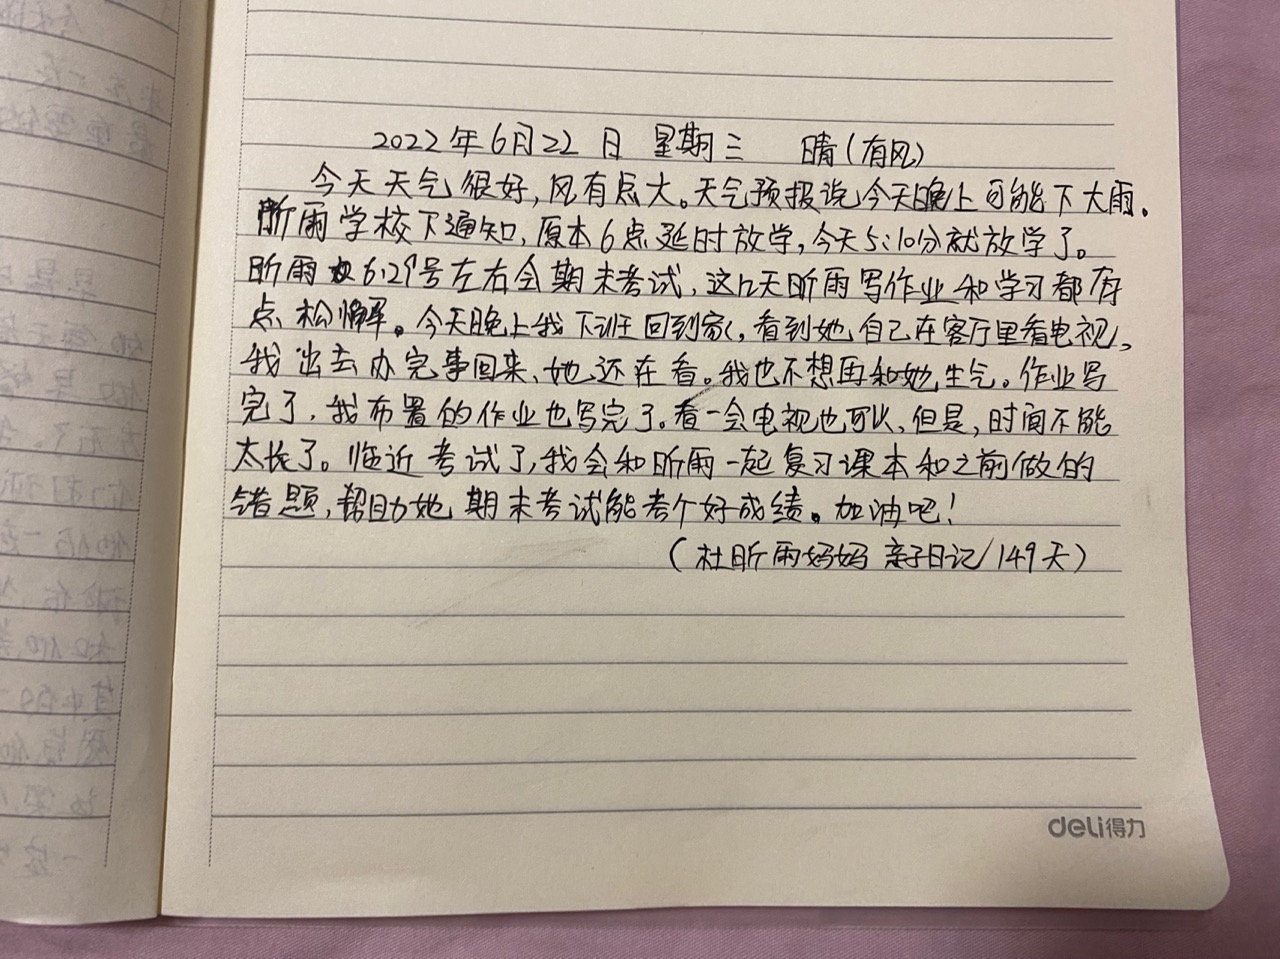 2022年6月22日 星期三 晴(有风)
今天天气很好,风有点大。天气预报说今天晚上可能下大雨.
昕雨学校下通知,原本6点延时放学,今天5:10分就放学了。
昕雨6.29号左右会期末考试,这几天昕雨写作业和学习都有
点松懈。今天晚上我下班回到家,看到她自己在客厅里看电视,
我出去办完事回来、她还在看。我也不想再和她生气。作业写
完了,我布置的作业也写完了。看一会电视也可以,但是,时间不能
太长了。临近考试了,我会和昕雨一起复习课本和之前做的
错题,帮助她期末考试能考个好成绩。加油吧!
(杜昕雨妈妈 亲子日记/149天)
deli得力